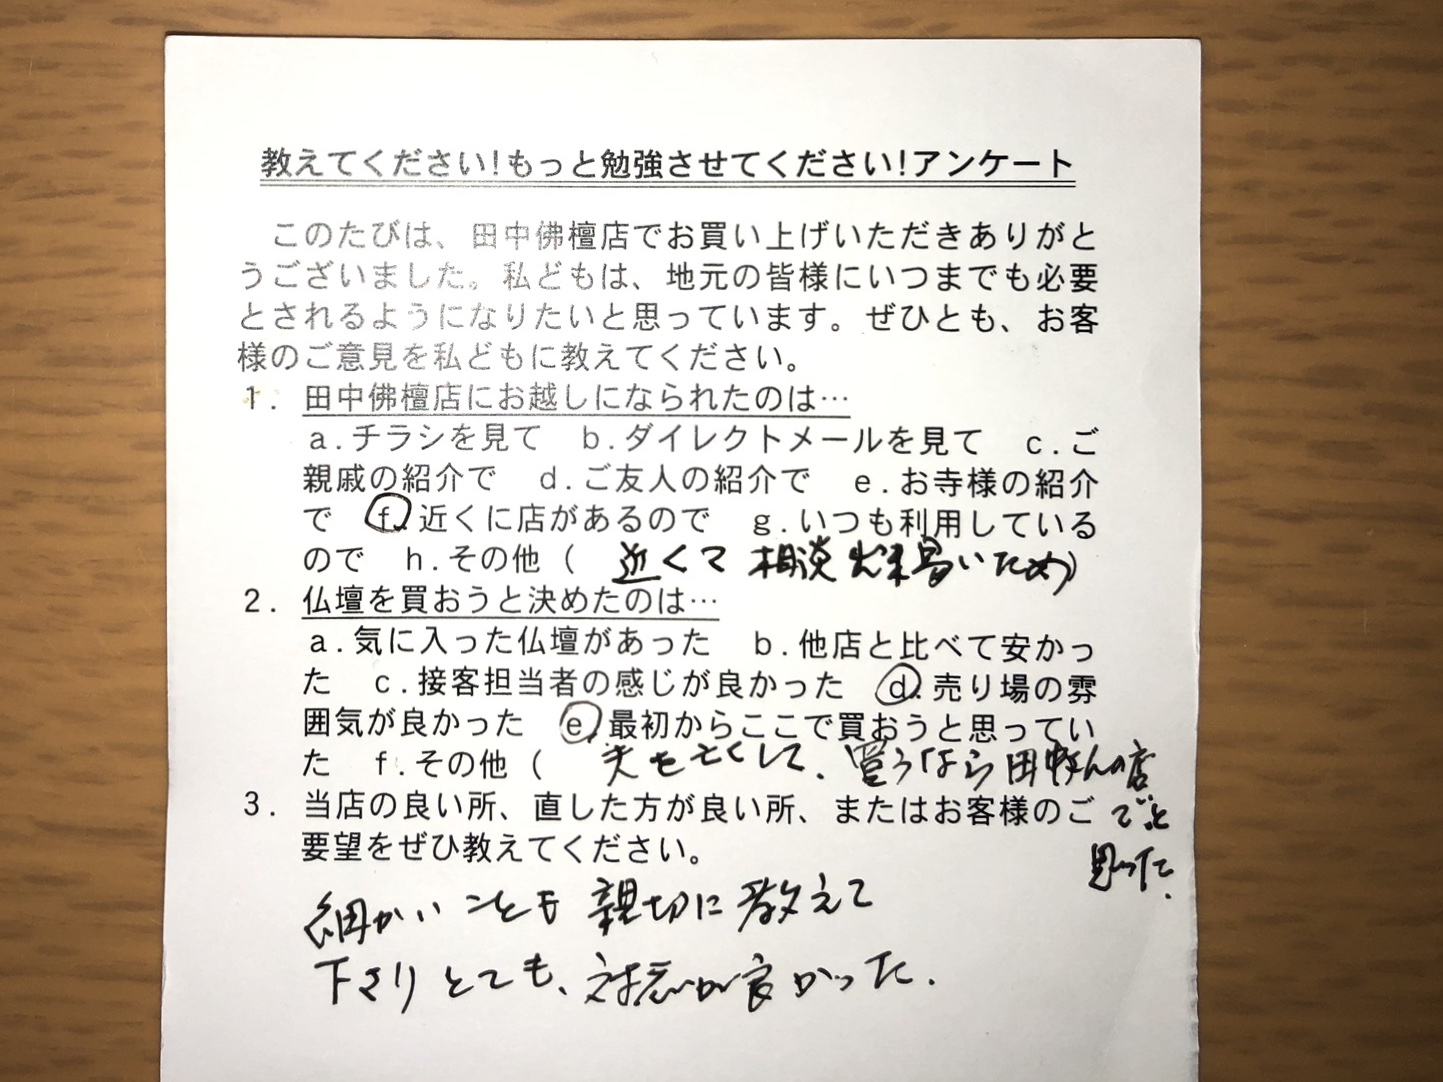 教えてください!もっと勉強させてください!アンケート
このたびは、田中佛檀店でお買い上げいただきありがと
うございました。私どもは、地元の皆様にいつまでも必要
とされるようになりたいと思っています。ぜひとも、お客
様のご意見を私どもに教えてください。
1. 田中佛檀店にお越しになられたのは…
a.チラシを見て b.ダイレクトメールを見て c.ご
親戚の紹介で d.ご友人の紹介で e.お寺様の紹介
で f.近くに店があるので g.いつも利用している
ので h.その他( 近くて 相談出来易いため)
2. 仏壇を買おうと決めたのは…
a.気に入った仏壇があった b.他店と比べて安かっ
た c.接客担当者の感じが良かった d.売り場の雰
囲気が良かった e.最初からここで買おうと思ってい
た f.その他( 夫を亡くして、買うなら田中さんの店
3. 当店の良い所、直した方が良い所、またはお客様のご でと
要望をぜひ教えてください。 思った.
細かいことも親切に教えて
下さりとても、対応が良かった.